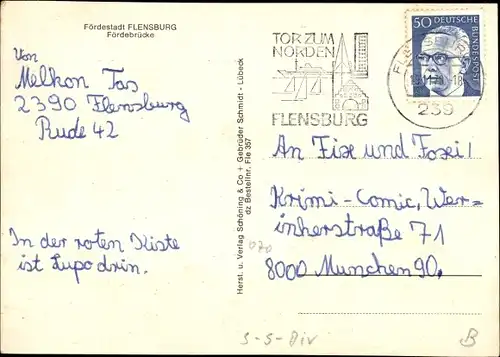 Fördestadt FLENSBURG
Fördebrücke
Von
Melkon Tas
2390 Flensburg
Rude 42
In der roten Kiste
ist Lupo drin.
Herst. u. Verlag Schöning & Co + Gebrüder Schmidt - Lübeck
dz Bestellnr. Fle 357
TOR ZUM
NORDEN
FLENSBURG
50 DEUTSCHE
BUNDESPOST
239
An Fix und Foxi!
Krimi-Comic, Wer-
inherstraße 71
8000 Munchen 90,
S-S-Div
B